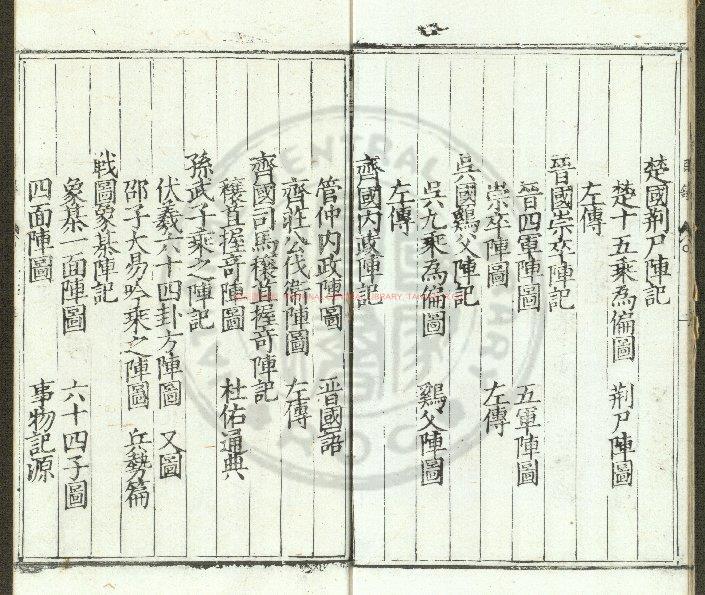 楚國荆尸陣記
楚十五乘為偏圖 荆尸陣圖
左傳
晉國崇卒陣記
晉四軍陣圖 五軍陣圖
崇卒陣圖 左傳
吳國鷄父陣記
吳九乘為偏圖 鷄父陣圖
左傳
齊國內政陣記
管仲內政陣圖 晋國語
齊莊公伐衞陣圖 左傳
齊國司馬穰苴握奇陣記
穰苴握奇陣圖 杜佑通典
孫武子乘之陣記
伏羲六十四卦方陣圖 又圖
邵子大易吟乘之陣圖 兵勢篇
戰圖象棊陣記
象棊一面陣圖 六十四子圖
四面陣圖 事物記源